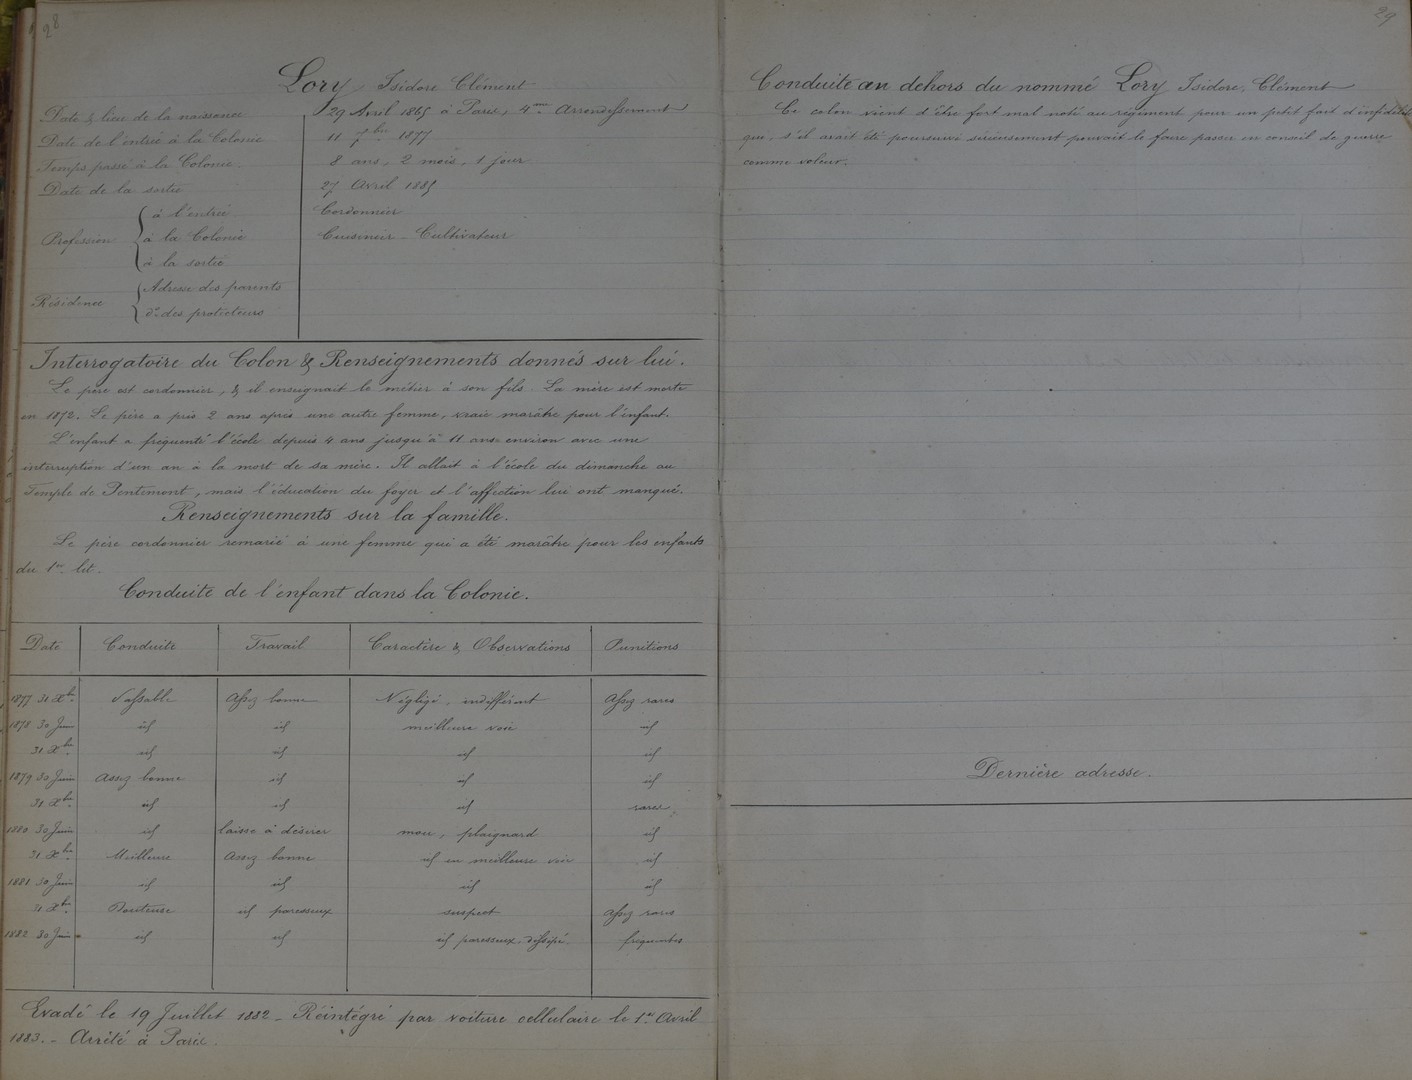 28
Lory, Isidore Clément
Date & lieu de la naissance 29 Avril 1865 à Paris, 4me Arrondissement
Date de l'entrée à la Colonie 11 7bre 1877
Temps passé à la Colonie. 8 ans, 2 mois, 1 jour
Date de la sortie 27 Avril 1885
Profession à l'entrée Cordonnier
à la Colonie Cuisinier - Cultivateur
à la sortie
Résidence Adresse des parents
do des protecteurs
Interrogatoire du Colon & Renseignements donnés sur lui.
Le père est cordonnier, & il enseignait le métier à son fils. La mère est morte
en 1872. Le père a pris 2 ans après une autre femme, vraie marâtre pour l'enfant.
L'enfant a fréquenté l'école depuis 4 ans jusqu'à 11 ans environ avec une
interruption d'un an à la mort de sa mère. Il allait à l'école du dimanche au
Temple de Pentimont, mais l'éducation du foyer et l'affection lui ont manqué.
Renseignements sur la famille.
Le père cordonnier remarié à une femme qui a été marâtre pour les enfants
du 1er lit.
Conduite de l'enfant dans la Colonie.
Date Conduite Travail Caractère & Observations Punitions
1877 31 Xbre Passable Assez bonne Négligé, indifférent Assez rares
1878 30 Juin id id meilleure voie id
31 Xbre id id id id
1879 30 Juin Assez bonne id id id
31 Xbre id id id rares
1880 30 Juin id laisse à désirer mou, plaignard id
31 Xbre Meilleure Assez bonne id en meilleure voie id
1881 30 Juin id id id id
31 Xbre Douteuse id paresseux suspect Assez rares
1882 30 Juin id id id paresseux, dissipé. fréquentes
Evadé le 19 Juillet 1882 - Réintégré par voiture cellulaire le 1er Avril
1883. - Arrêté à Paris.
29
Conduite au dehors du nommé Lory Isidore, Clément
Ce colon vient d'être fort mal noté au régiment pour un petit fait d'infidélité
qui, s'il avait été poursuivi sérieusement pouvait le faire passer en conseil de guerre
comme voleur.
Dernière adresse.